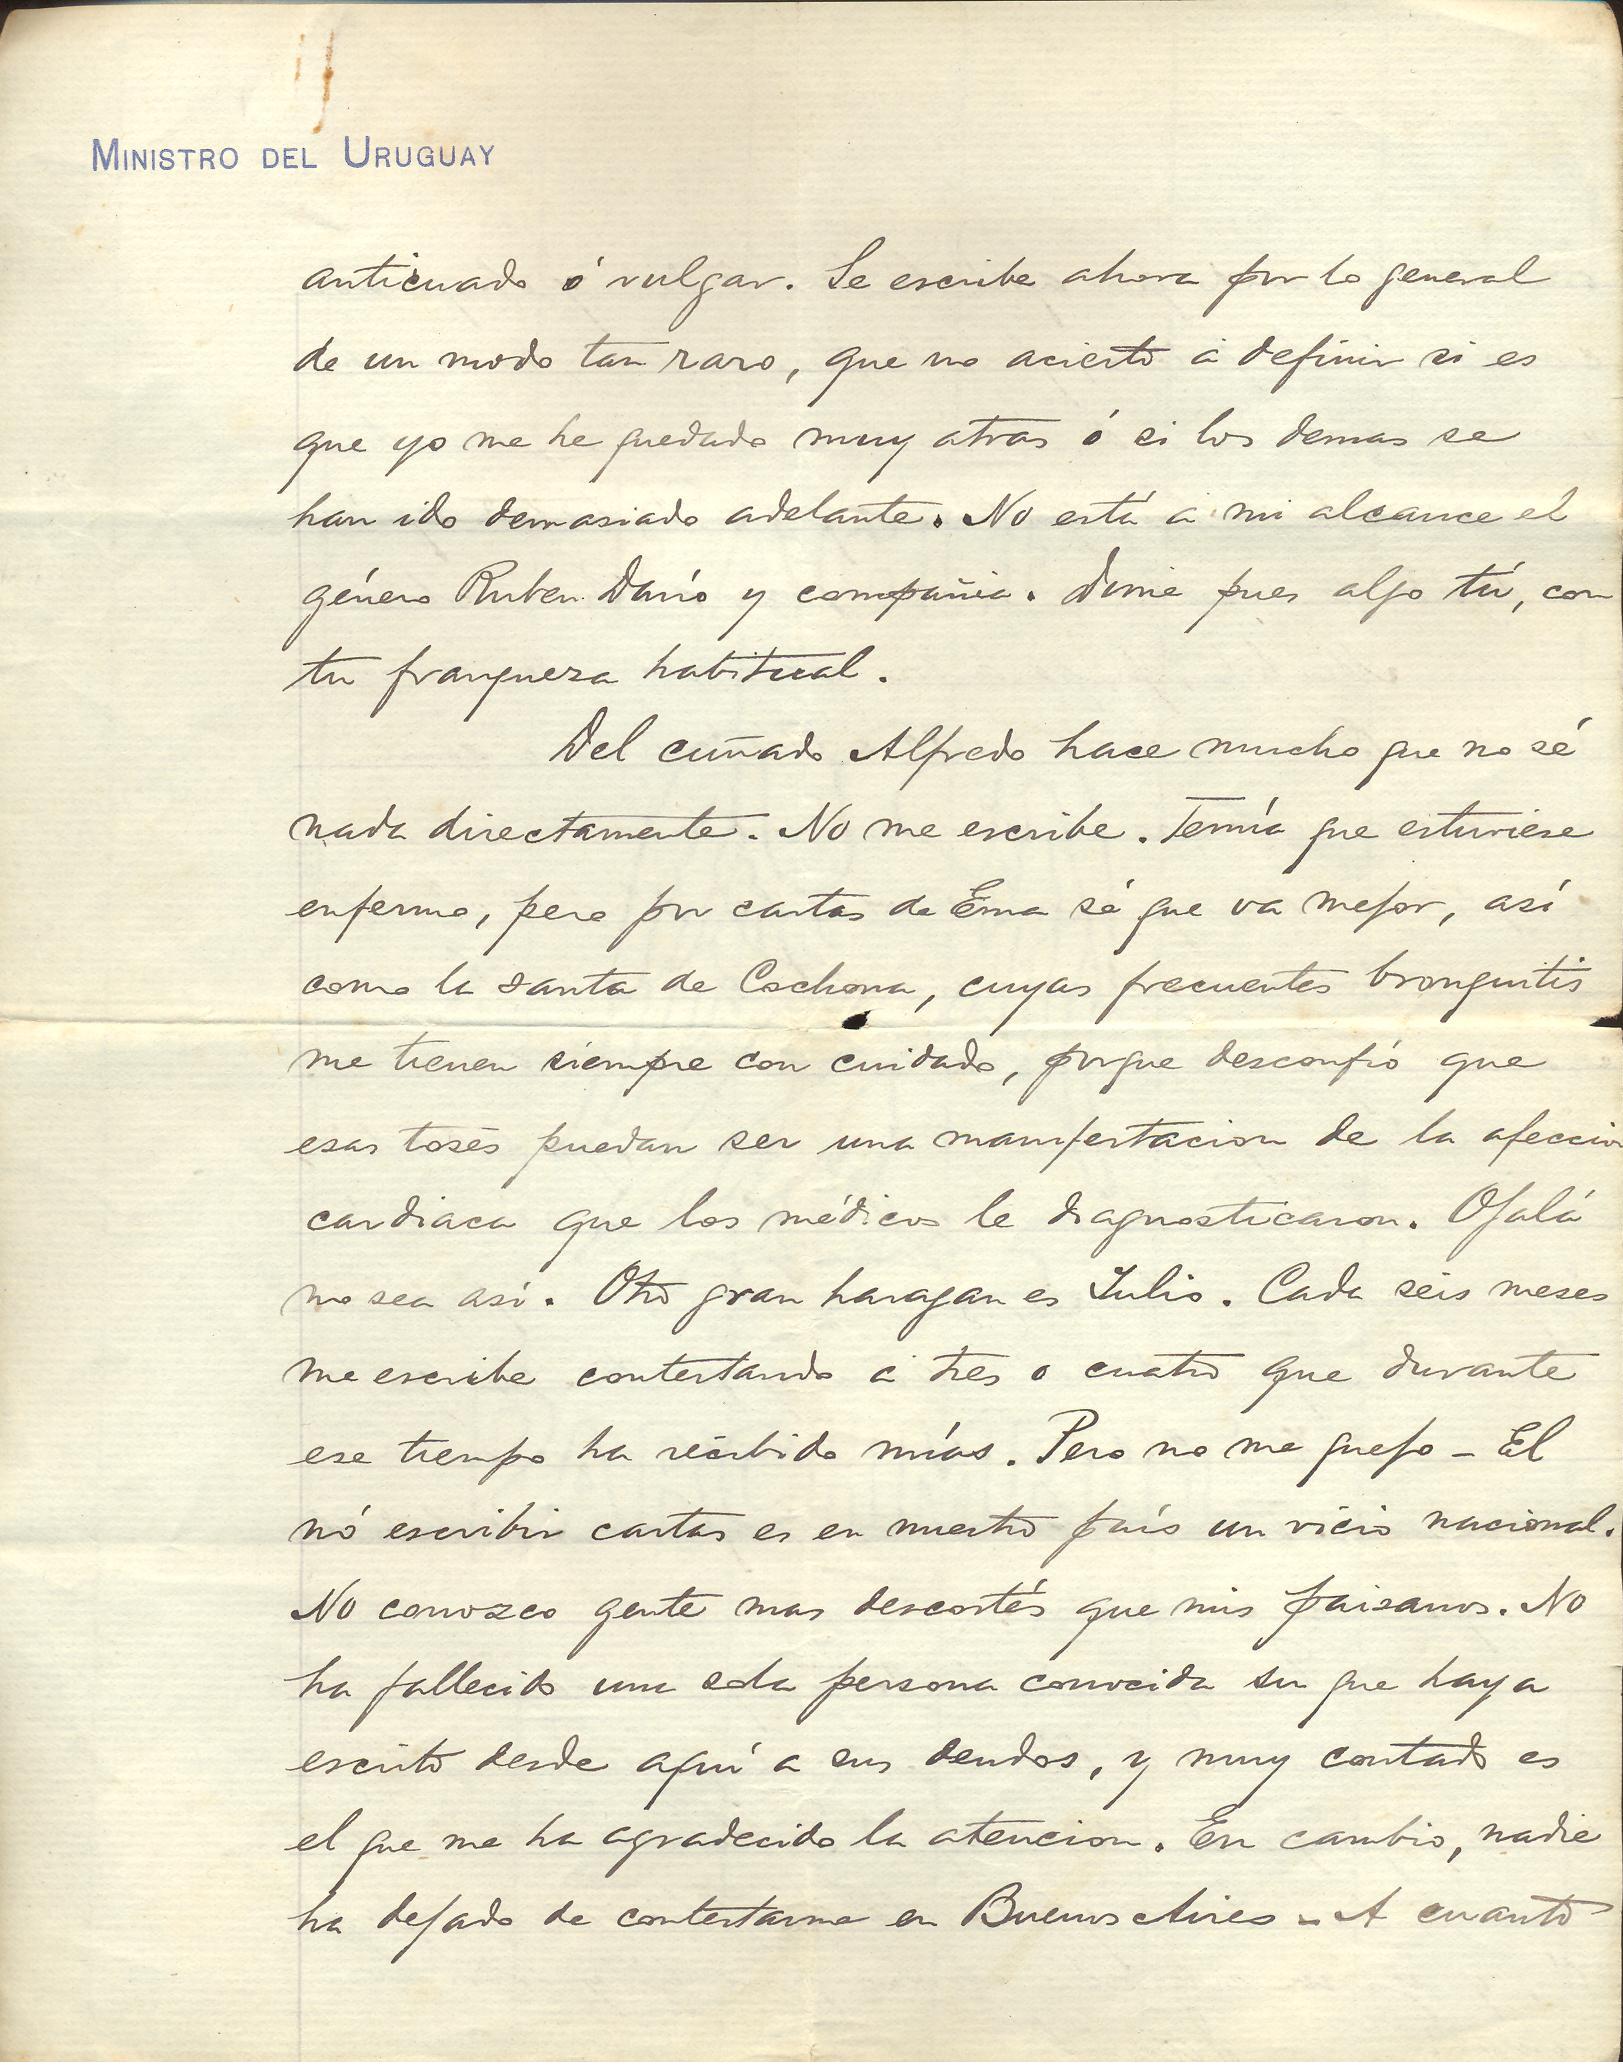 MINISTRO DEL URUGUAY
anticuado ó vulgar. Se escribe ahora por lo general
de un modo tan raro, que no acierto á definir si es
que yo me he quedado muy atras ó si los demas se
han ido demasiado adelante. No está á mi alcance el
género Ruben Darío y compañia. Dime pues algo tú, con
tu franqueza habitual.
Del cuñado Alfredo hace mucho que no sé
nada directamente. No me escribe. Temía que estuviese
enfermo, pero por cartas de Ema sé que va mejor, así
como la santa de Cochona, cuyas frecuentes bronquitis
me tienen siempre con cuidado, porque desconfío que
esas toses puedan ser una manifestacion de la afeccion
cardiaca que los médicos le diagnosticaron. Ojalá
no sea así. Otro gran haragan es Julio. Cada seis meses
me escribe contestando á tres o cuatro que durante
ese tiempo ha recibido mías. Pero no me quejo - El
nó escribir cartas es en nuestro país un vicio nacional.
No conozco gente mas descortés que mis paisanos. No
ha fallecido una sola persona conocida sin que haya
escrito desde aquí a sus deudos, y muy contado es
el que me ha agradecido la atencion. En cambio, nadie
ha dejado de contestarme en Buenos Aires - A cuanto